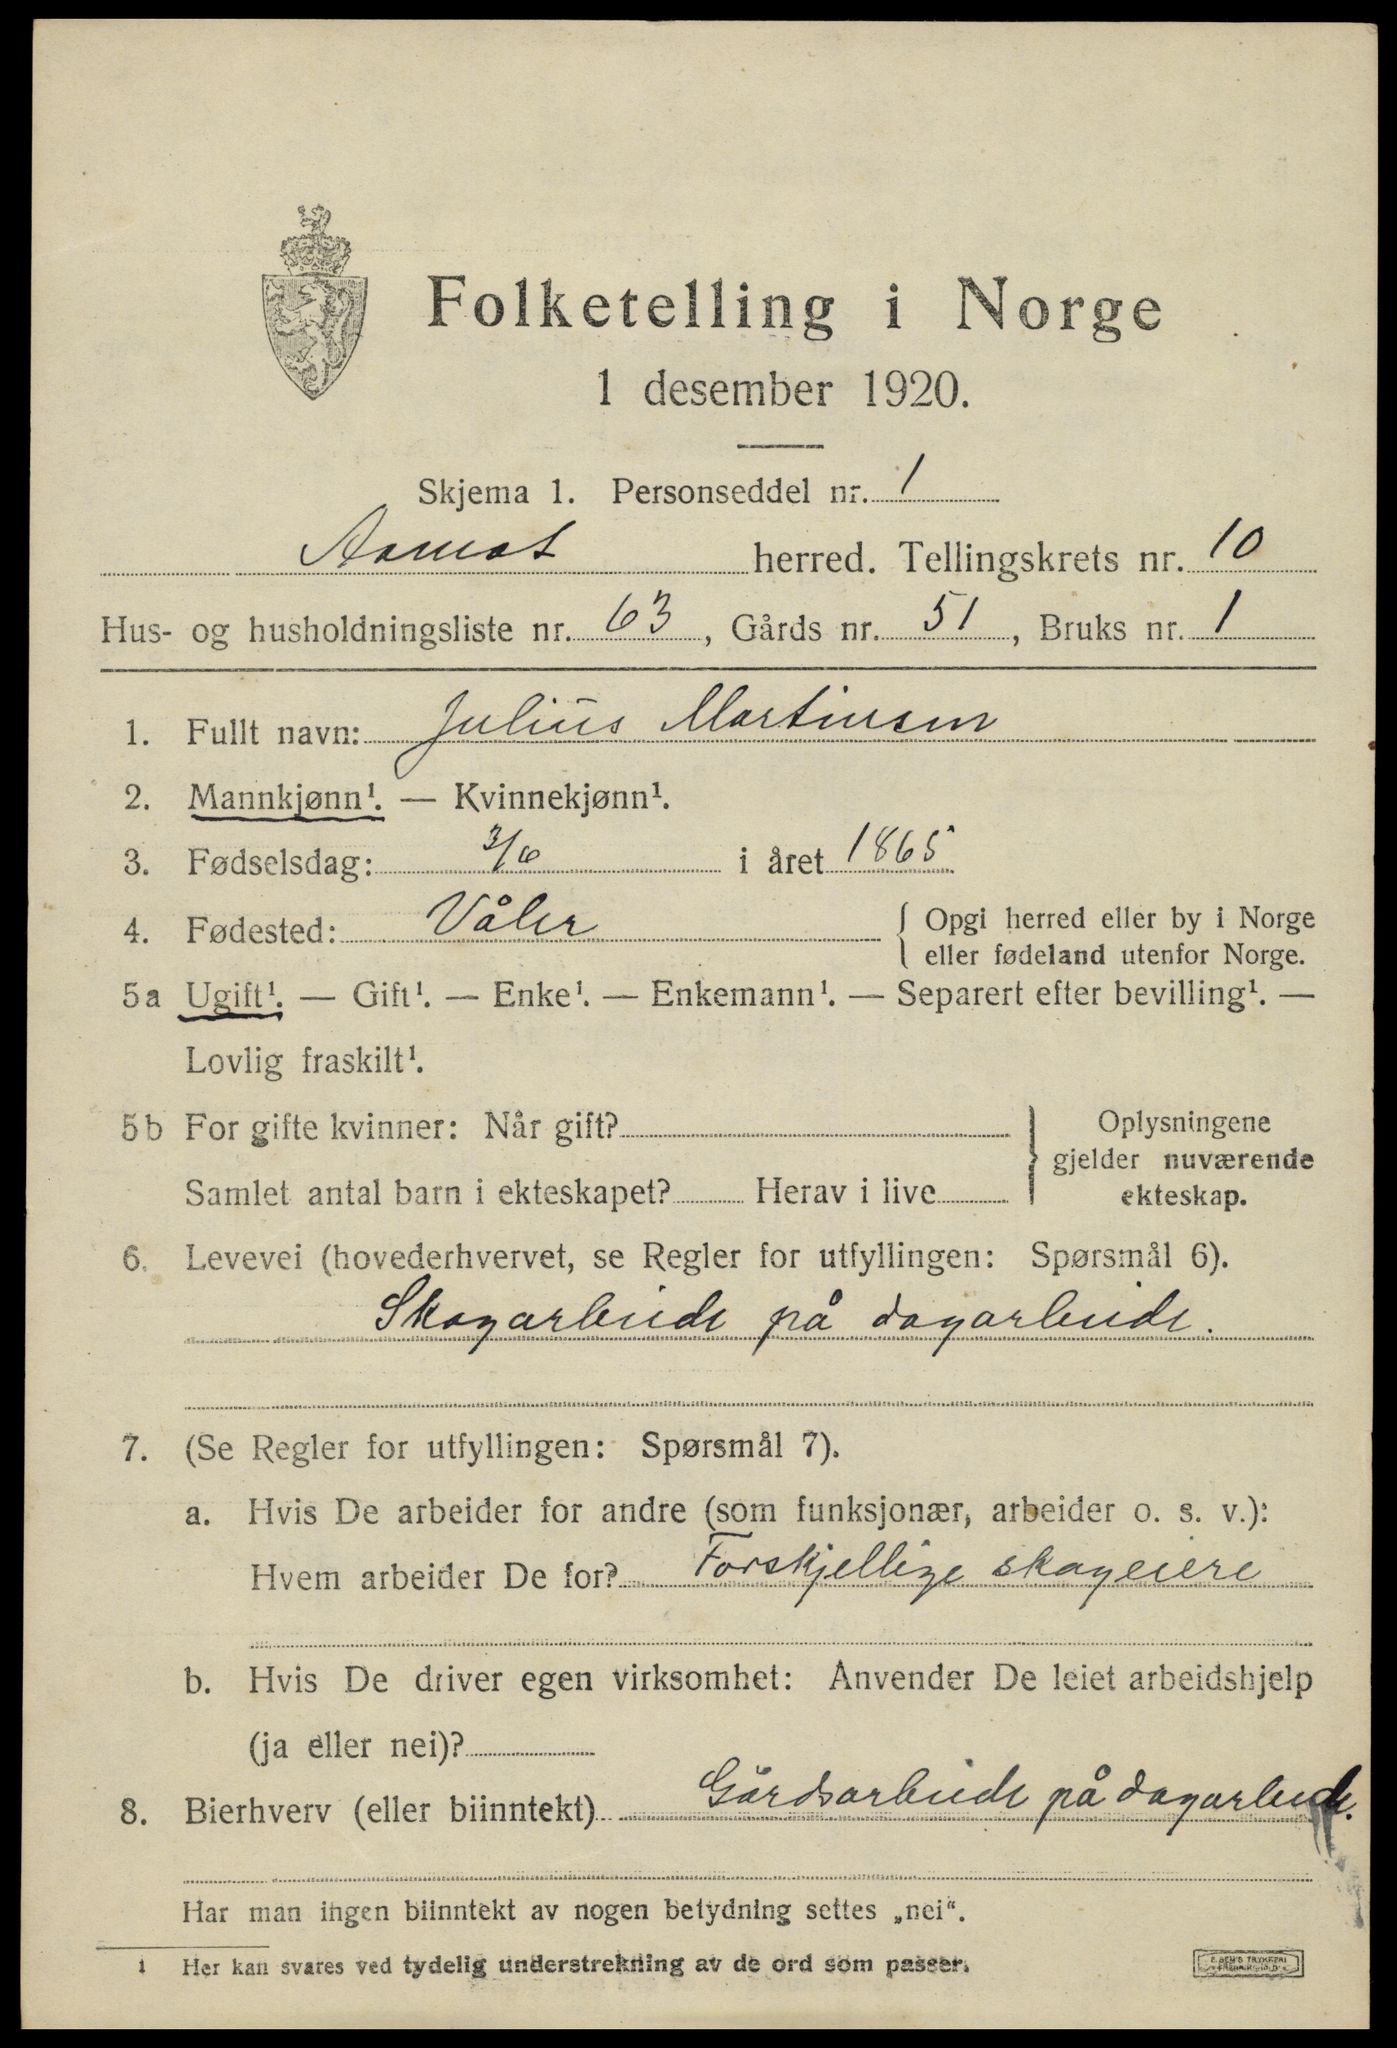 Folketelling i Norge
1 desember 1920.
Skjema 1. Personseddel nr. 1
Aamot herred. Tellingskrets nr. 10
Hus- og husholdningsliste nr. 63, Gårds nr. 51, Bruks nr. 1
1. Fullt navn: Julius Martinsen
2. Mannkjønn¹. — Kvinnekjønn¹.
3. Fødselsdag: 3/6 i året 1865
4. Fødested: Våler { Opgi herred eller by i Norge
eller fødeland utenfor Norge.
5a Ugift¹. — Gift¹. — Enke¹. — Enkemann¹. — Separert efter bevilling¹. —
Lovlig fraskilt¹.
5b For gifte kvinner: Når gift?
Samlet antal barn i ekteskapet? Herav i live
} Oplysningene
gjelder nuværende
ekteskap.
6. Levevei (hovederhvervet, se Regler for utfyllingen: Spørsmål 6).
Skogarbeide på dagarbeide.
7. (Se Regler for utfyllingen: Spørsmål 7).
a. Hvis De arbeider for andre (som funksjonær, arbeider o. s. v.):
Hvem arbeider De for? Forskjellige skogeiere
b. Hvis De driver egen virksomhet: Anvender De leiet arbeidshjelp
(ja eller nei)?
8. Bierhverv (eller biinntekt) Gårdsarbeide på dagarbeide.
Har man ingen biinntekt av nogen betydning settes „nei“.
1 Her kan svares ved tydelig understrekning av de ord som passer.